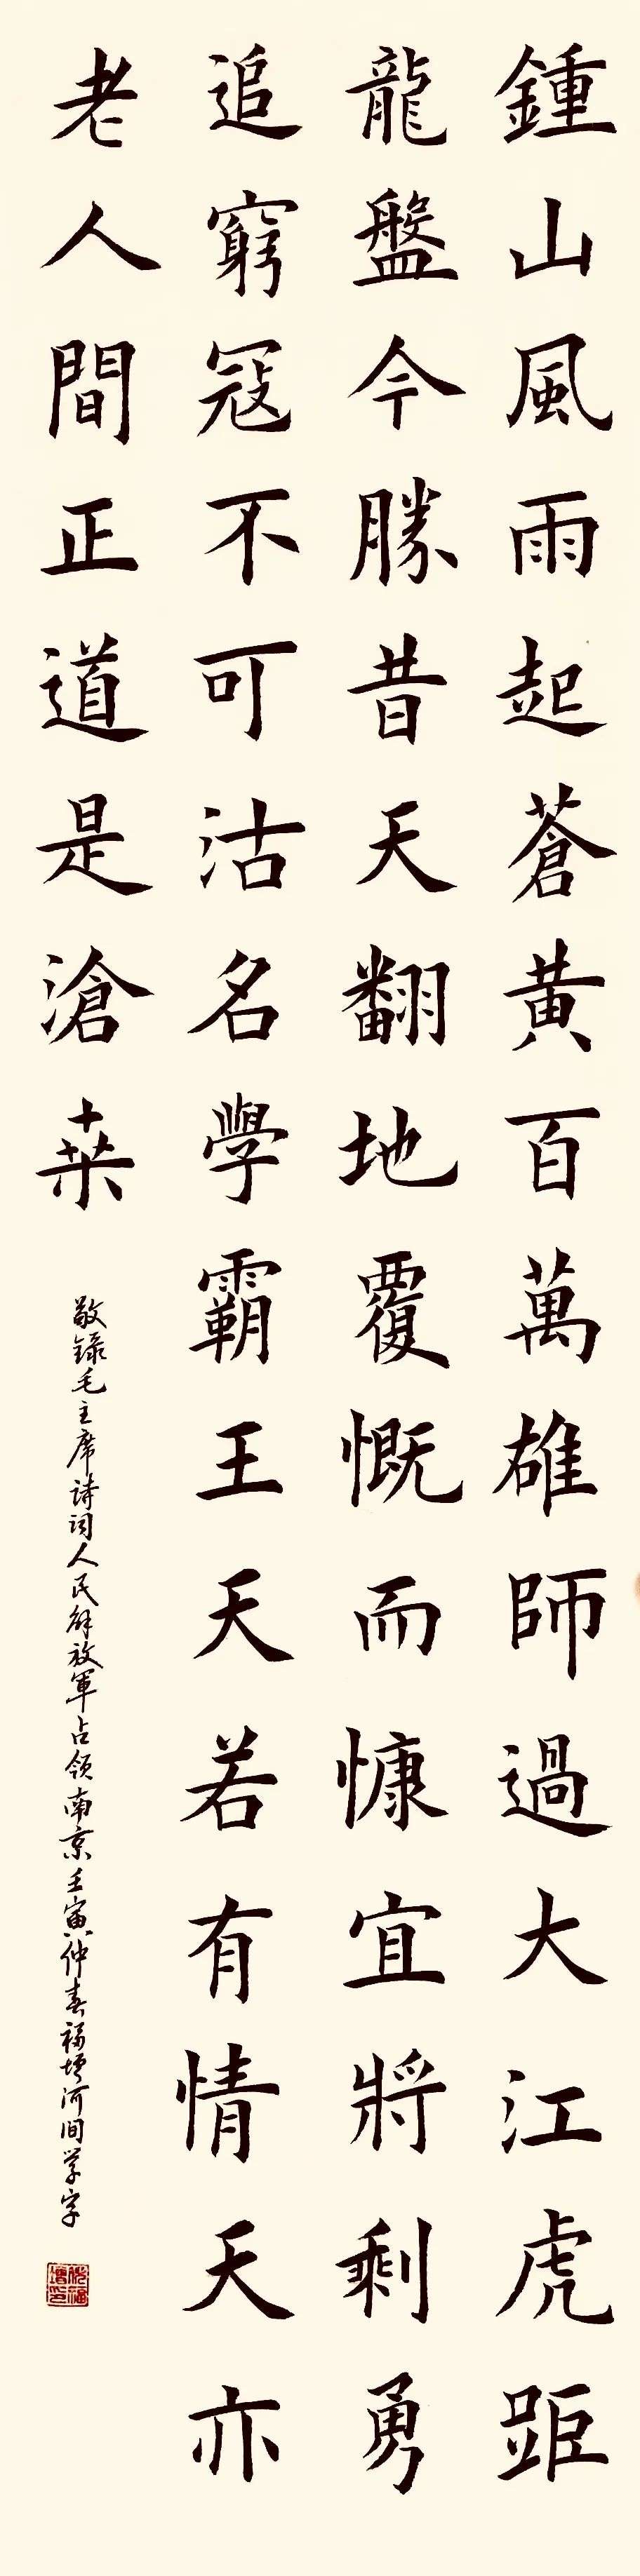 鍾山風雨起蒼黃百萬雄師過大江虎距
龍盤今勝昔天翻地覆慨而慷宜將剩勇
追窮寇不可沽名學霸王天若有情天亦
老人間正道是滄桒
敬錄毛主席詩詞人民解放軍占領南京壬寅仲春福增河間學字